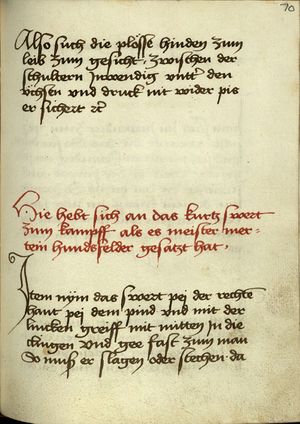 70
Also such die plösse hinden zum
leib zum gesicht, zwischen der
schultern Inwendig untter den
vchsen vnd druck nit wider pis
er sichert etc
Hie hebt sich an das kurtz swert
zum kampff als es meister mer-
tein hundsfelder gesatzt hat,
Item nym das swert pei der rechten
hant pei dem pind vnd mit der
lincken greiff mit mitten In die
clingen vnd gee fast zum man
So muß er slagen oder stechen da